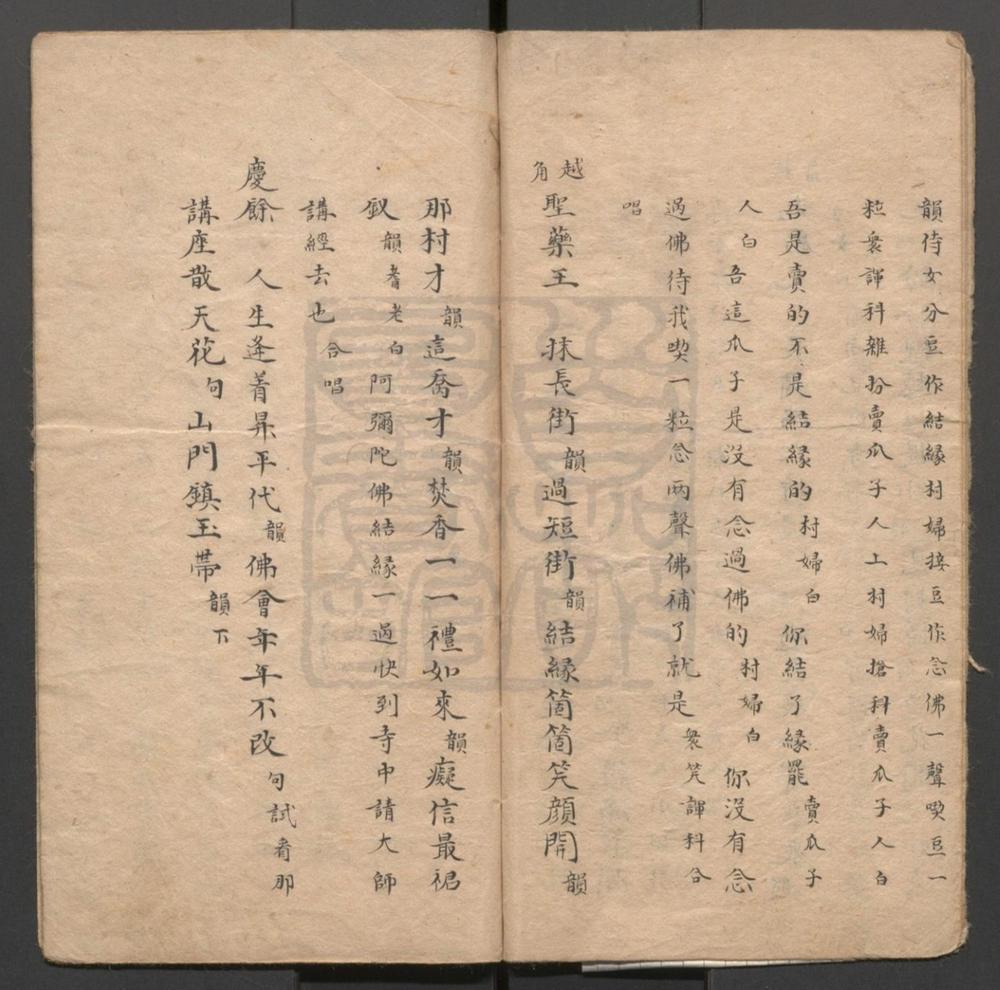 韻侍女分豆作結緣村婦接豆作念佛一聲喫豆一
粒衆諢科雜扮賣瓜子人上村婦搶科賣瓜子人白
吾是賣的不是結緣的村婦白你結了緣罷賣瓜子
人白吾這瓜子是沒有念過佛的村婦白你沒有念
過佛待我喫一粒念兩聲佛補了就是衆笑諢科合
唱
越角聖藥王 抹長街韻過短街韻結緣箇箇笑顏開韻
那村才韻這喬才韻焚香一一禮如來韻癡信最裙
釵韻耆老白阿彌陀佛結緣一過快到寺中請大師
講經去也合唱
慶餘 人生逢着昇平代韻佛會年年不改句試看那
講座散天花句山門鎮玉帶韻下